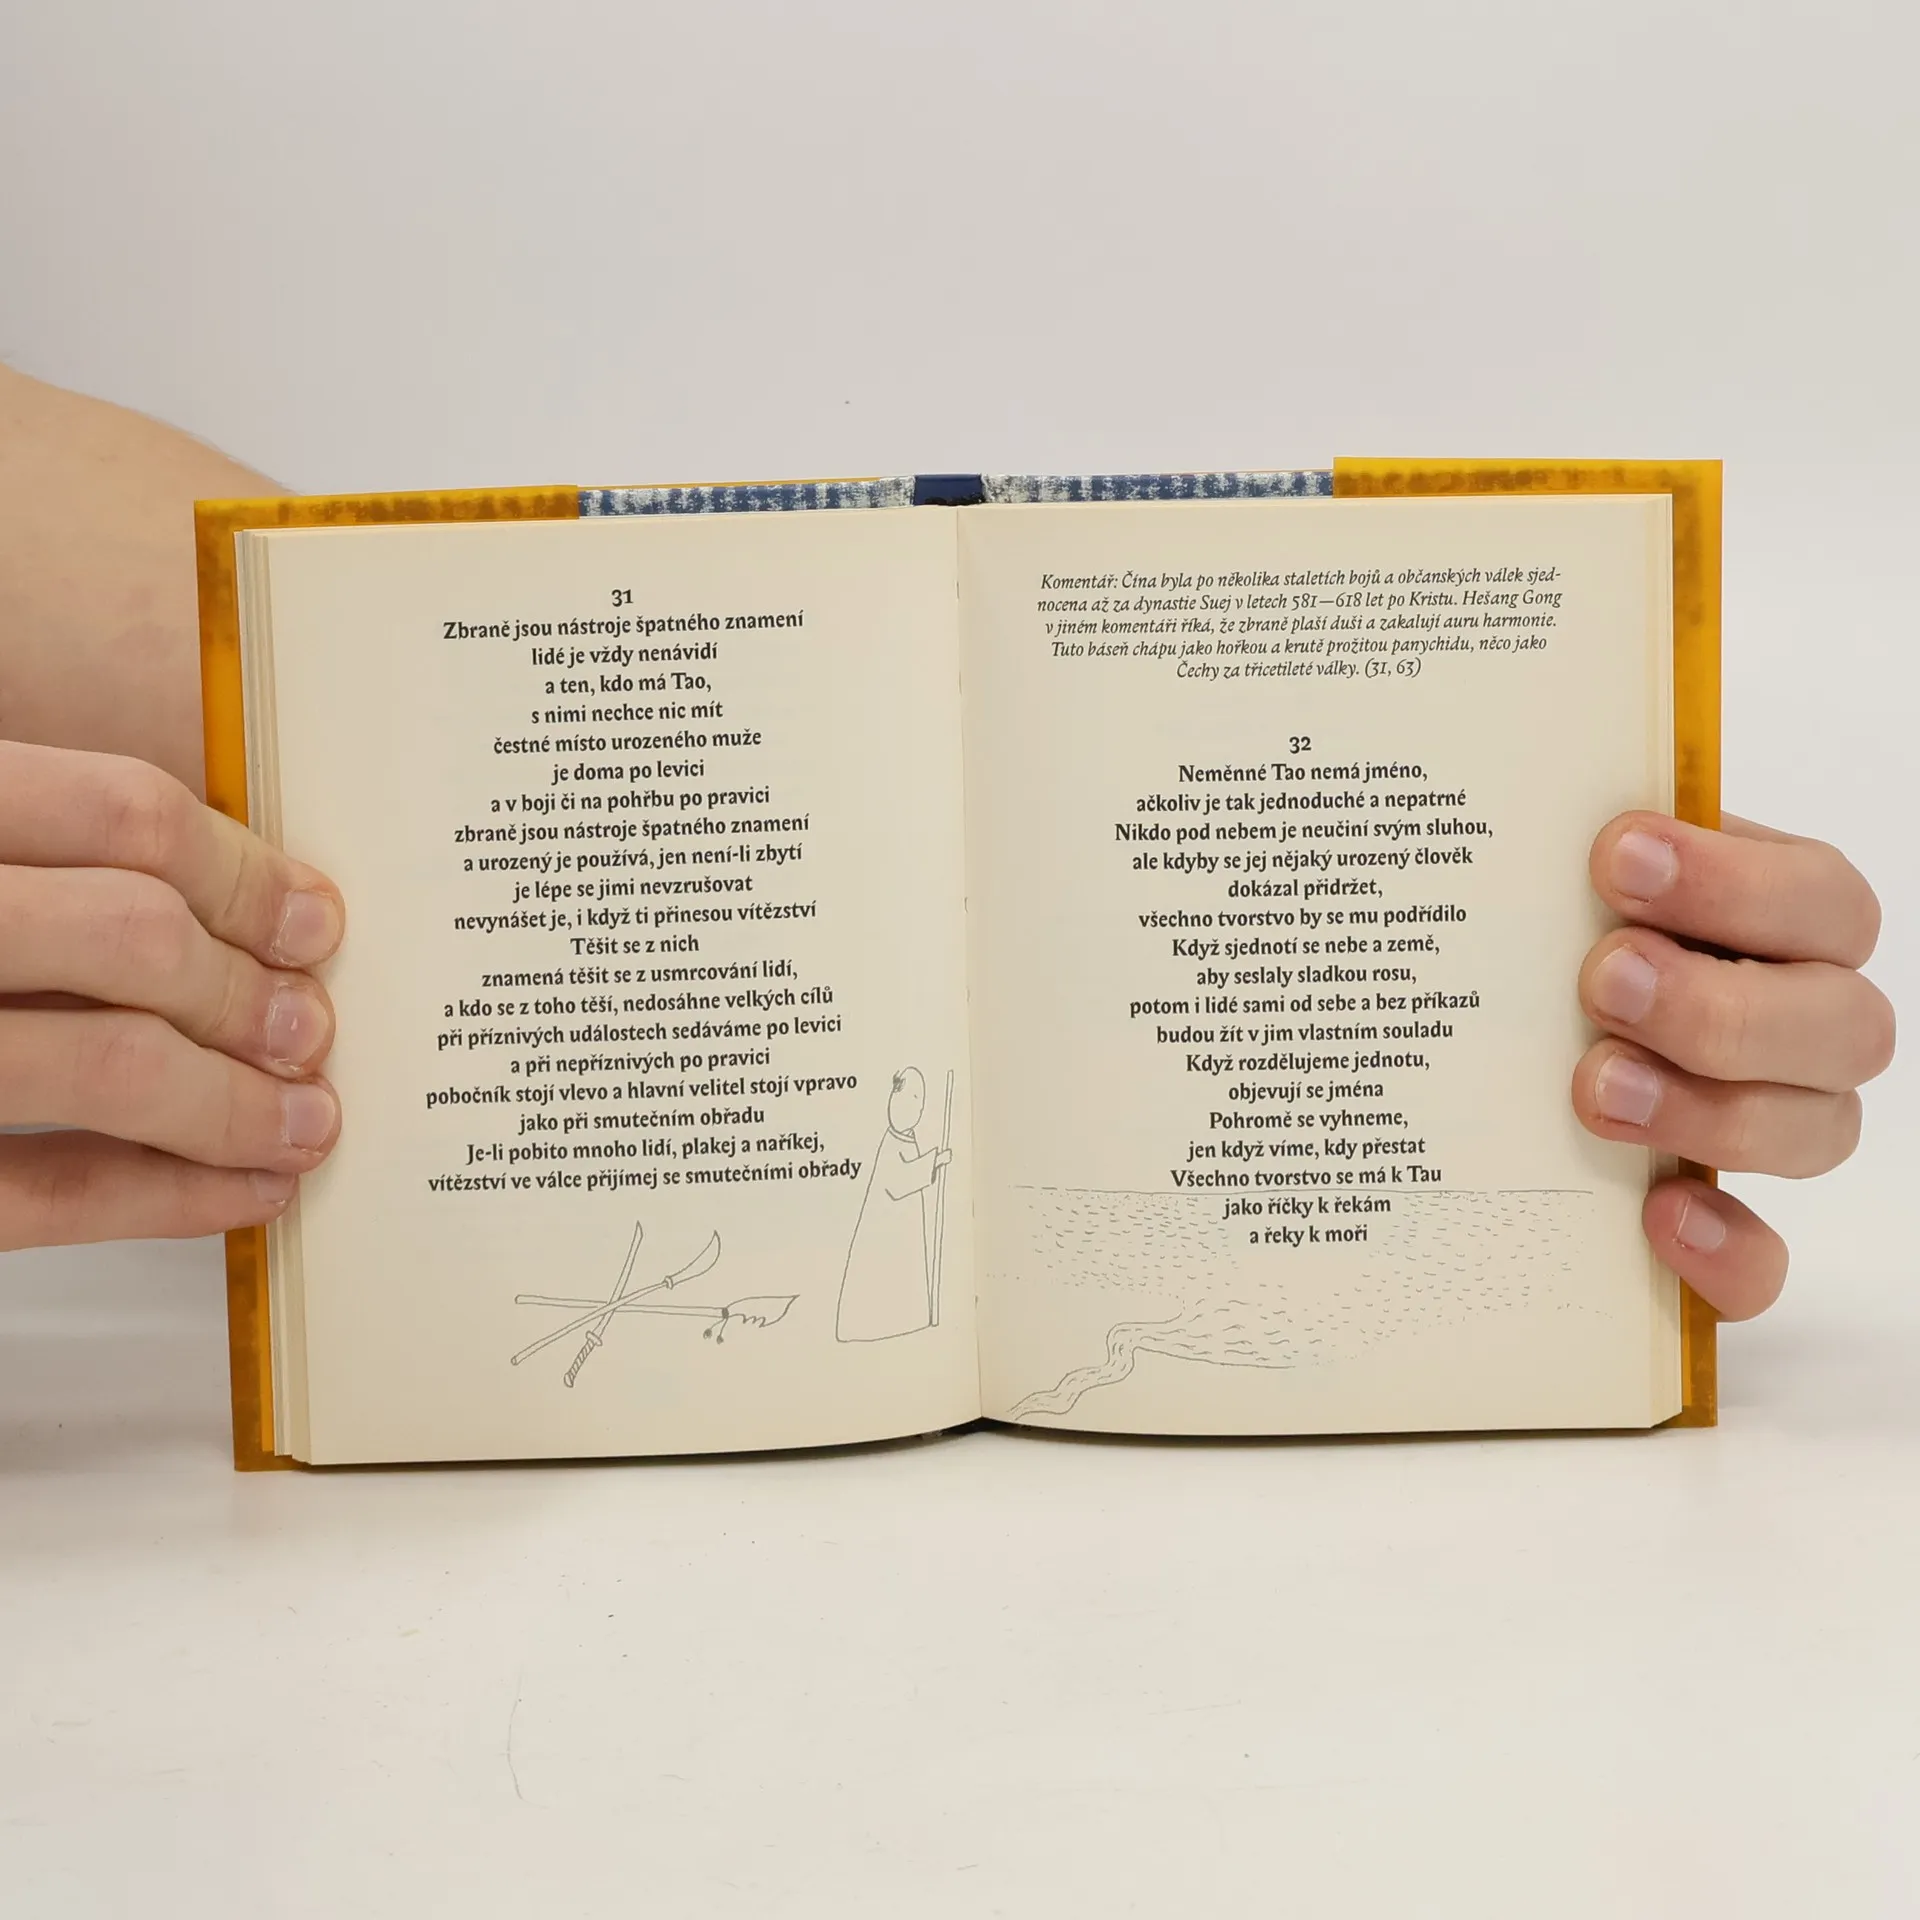 31
Zbraně jsou nástroje špatného znamení
lidé je vždy nenávidí
a ten, kdo má Tao,
s nimi nechce nic mít
čestné místo urozeného muže
je doma po levici
a v boji či na pohřbu po pravici
zbraně jsou nástroje špatného znamení
a urozený je používá, jen není-li zbytí
je lépe se jimi nevzrušovat
nevynášet je, i když ti přinesou vítězství
Těšit se z nich
znamená těšit se z usmrcování lidí,
a kdo se z toho těší, nedosáhne velkých cílů
při příznivých událostech sedáváme po levici
a při nepříznivých po pravici
pobočník stojí vlevo a hlavní velitel stojí vpravo
jako při smutečním obřadu
Je-li pobito mnoho lidí, plakej a naříkej,
vítězství ve válce přijímej se smutečními obřady
Komentář: Čína byla po několika staletích bojů a občanských válek sjed-
nocena až za dynastie Suej v letech 581—618 let po Kristu. Hešang Gong
v jiném komentáři říká, že zbraně plaší duši a zakalují auru harmonie.
Tuto báseň chápu jako hořkou a krutě prožitou panychidu, něco jako
Čechy za třicetileté války. (31, 63)
32
Neměnné Tao nemá jméno,
ačkoliv je tak jednoduché a nepatrné
Nikdo pod nebem je neučiní svým sluhou,
ale kdyby se jej nějaký urozený člověk
dokázal přidržet,
všechno tvorstvo by se mu podřídilo
Když sjednotí se nebe a země,
aby seslaly sladkou rosu,
potom i lidé sami od sebe a bez příkazů
budou žít v jim vlastním souladu
Když rozdělujeme jednotu,
objevují se jména
Pohromě se vyhneme,
jen když víme, kdy přestat
Všechno tvorstvo se má k Tau
jako říčky k řekám
a řeky k moři